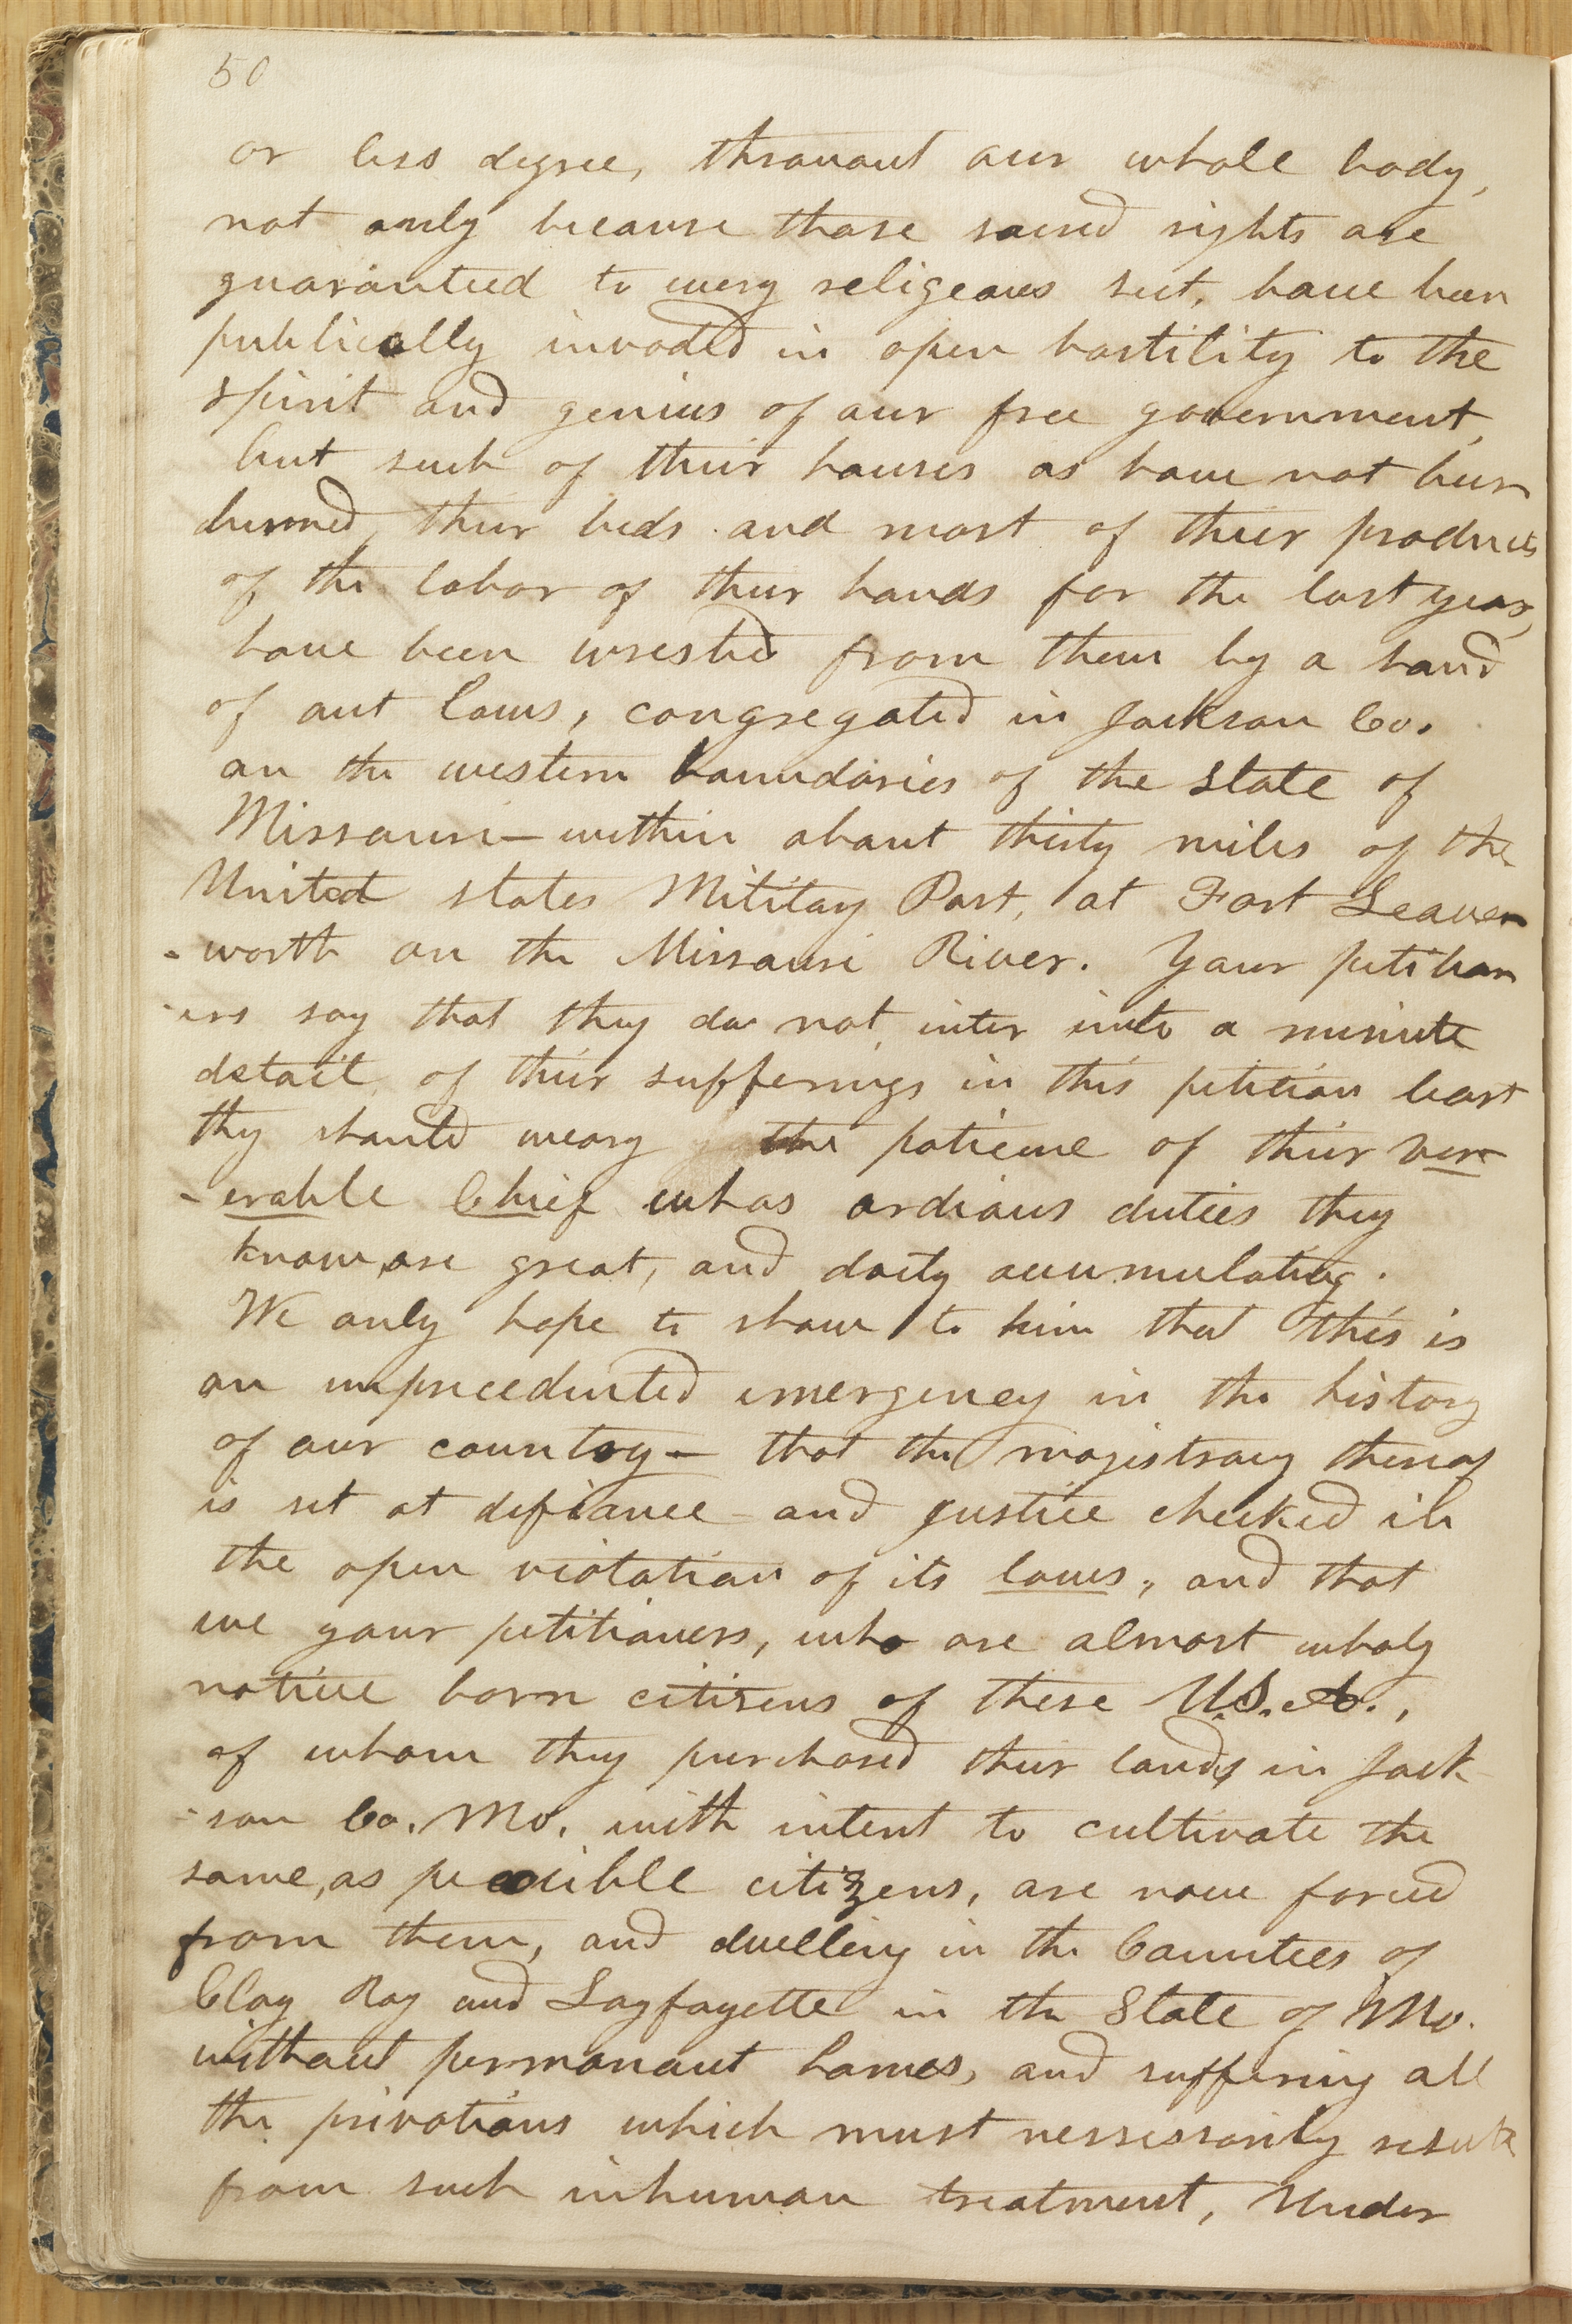 50
or less degree, throuout our whole body,
not only because those sacred rights are
guaranteed to every religeous sect, have been
publically invaded in open hostility to the
spirit and genius of our free government,
but such of their houses as have not been
burned, their beds and most of their products
of the labor of their hands for the last year,
have been wrested from them by a band
of out laws, congregated in Jackson Co.
on the western boundaries of the state of
Missouri—within about thirty miles of the
United states Military Post, at Fort Leaven
-worth on the Missouri River. Your petition
-ers say that they do not inter into a minute
detail of their sufferings in this petition least
they should weary the patience of their ven
-erable Chief whos ardious duties they
know, are great, and daily accumulating.
We only hope to show to him that this is
an unprecedented emergency in the history
of our country— that the magistracy thereof
is set at defiance and justice checked in
the open violation of its laws, and that
we your petitioners, who are almost wholy
native born citizens of these U.S.A.,
of whom they purchased their lands in Jack
-son Co. Mo. with intent to cultivate the
same, as peacible citizens, are now forced
from them, and dwelling in the Counties of
Clay Ray and Layfayette in the State of Mo.
without permanant homes, and suffering all
the privations which must nessessarily result
from such inhuman treatment, Under